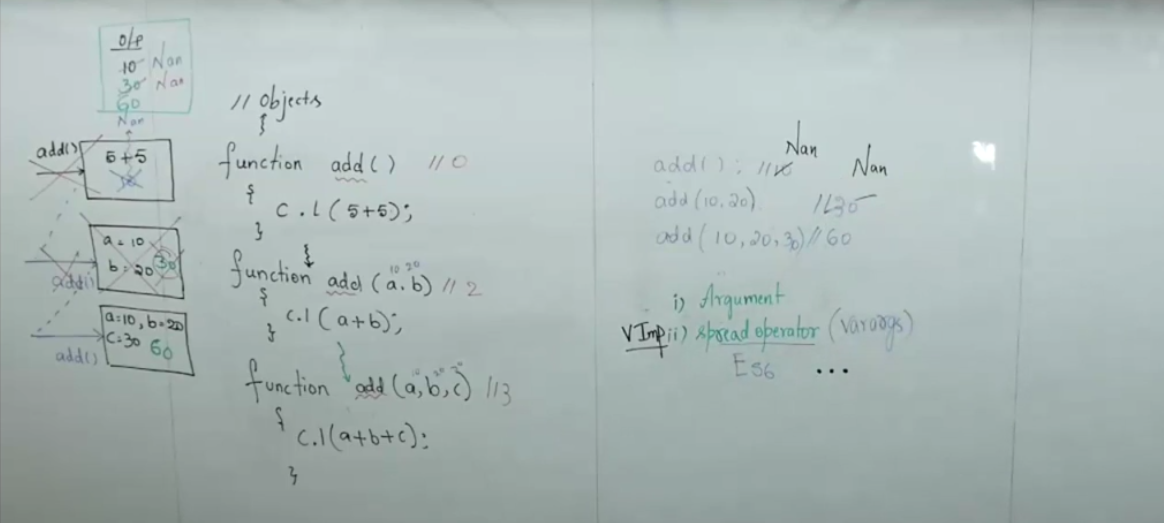 o/p
10 Nan
30 Nan
60
Nan
add()
5+5
10
a = 10
b = 20 30
add()
a=10, b=20
c=30 60
add()
// Objects
}
function add() //0
{
c.l(5+5);
}
function add(a.b) //2
10 20
{
c.l(a+b);
}
function add(a,b,c) //3
10 20 30
{
c.l(a+b+c);
}
Nan
add(); //10 Nan
add(10,20) //30
add(10,20,30)//60
i) Argument
V Imp ii) spread operator (varargs)
ES6 ...